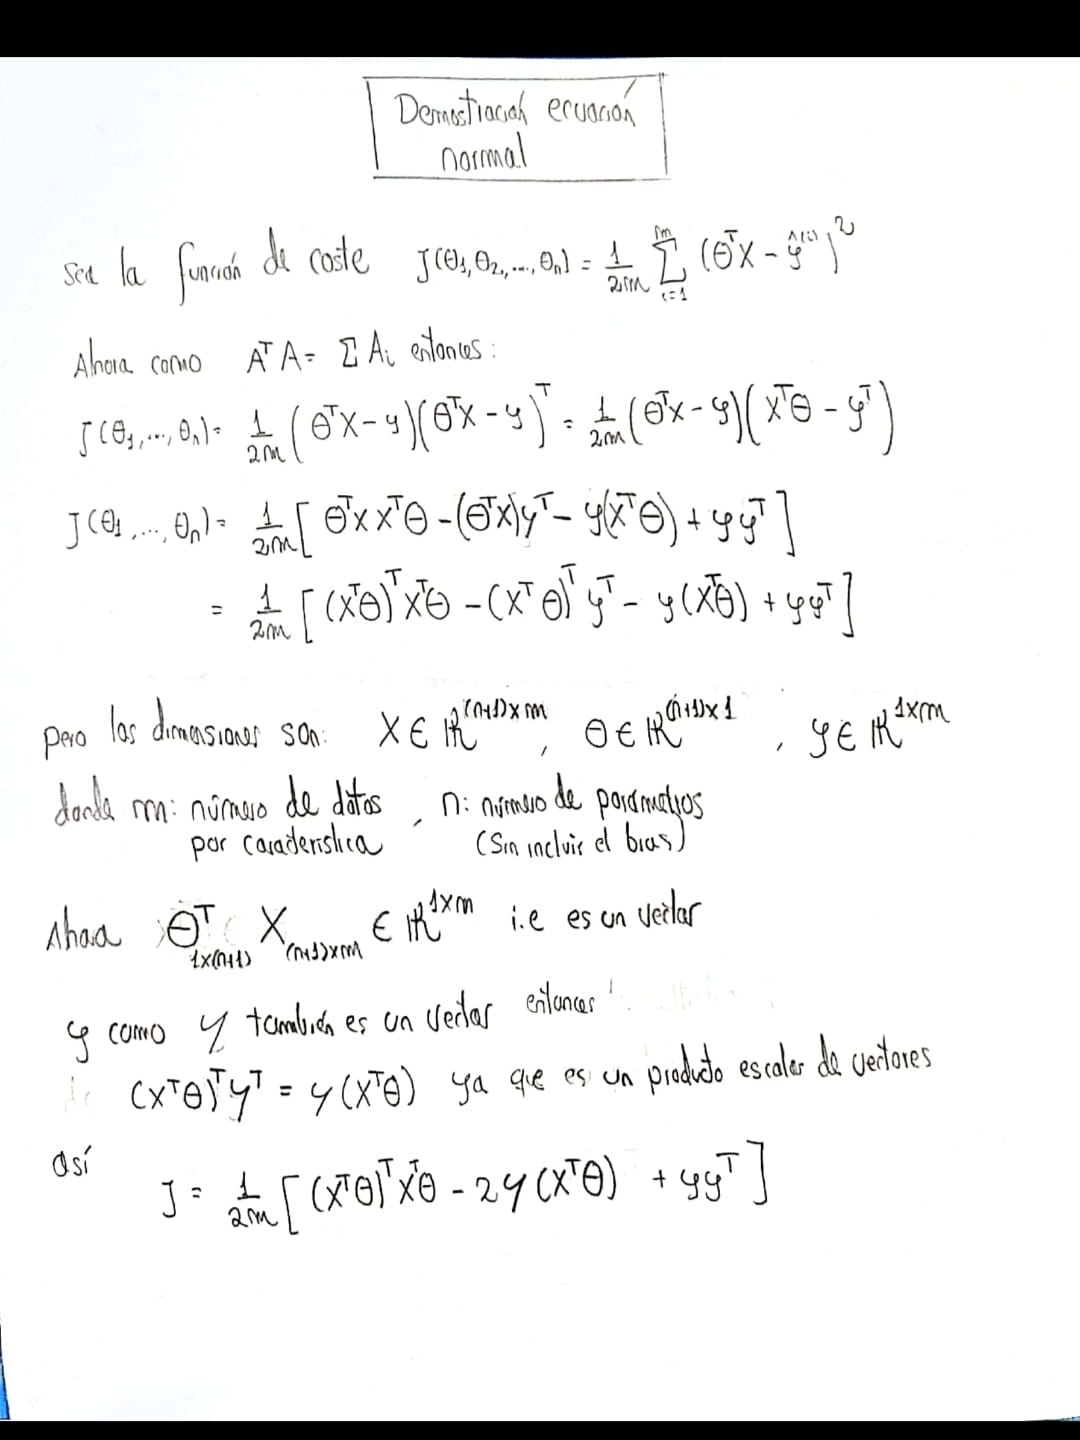 Demostración ecuación
normal
Sea la función de coste J(θ₁,θ₂,...,θₙ) = 1/2m Σᵢ₌₁ᵐ (θᵀX - ŷ⁽ⁱ⁾)²
Ahora como AᵀA = Σ Aᵢ entonces:
J(θ₁,...,θₙ) = 1/2m (θᵀX - y)(θᵀX - y)ᵀ = 1/2m (θᵀX - y)(Xᵀθ - yᵀ)
J(θ₁,...,θₙ) = 1/2m [θᵀX Xᵀθ - (θᵀX)yᵀ - y(Xᵀθ) + yyᵀ]
= 1/2m [(Xᵀθ)ᵀXᵀθ - (Xᵀθ)ᵀyᵀ - y(Xᵀθ) + yyᵀ]
Pero las dimensiones son: X ∈ ℝ⁽ⁿ⁺¹⁾ˣᵐ, θ ∈ ℝ⁽ⁿ⁺¹⁾ˣ¹, y ∈ ℝ¹ˣᵐ
donde m: número de datos, n: número de parámetros
por característica (Sin incluir el bias)
Ahora θᵀ₁ₓ₍ₙ₊₁₎ X₍ₙ₊₁₎ₓₘ ∈ ℝ¹ˣᵐ i.e es un vector
y como y también es un vector entonces:
(Xᵀθ)ᵀyᵀ = y(Xᵀθ) ya que es un producto escalar de vectores
así
J = 1/2m [(Xᵀθ)ᵀXᵀθ - 2y(Xᵀθ) + yyᵀ]